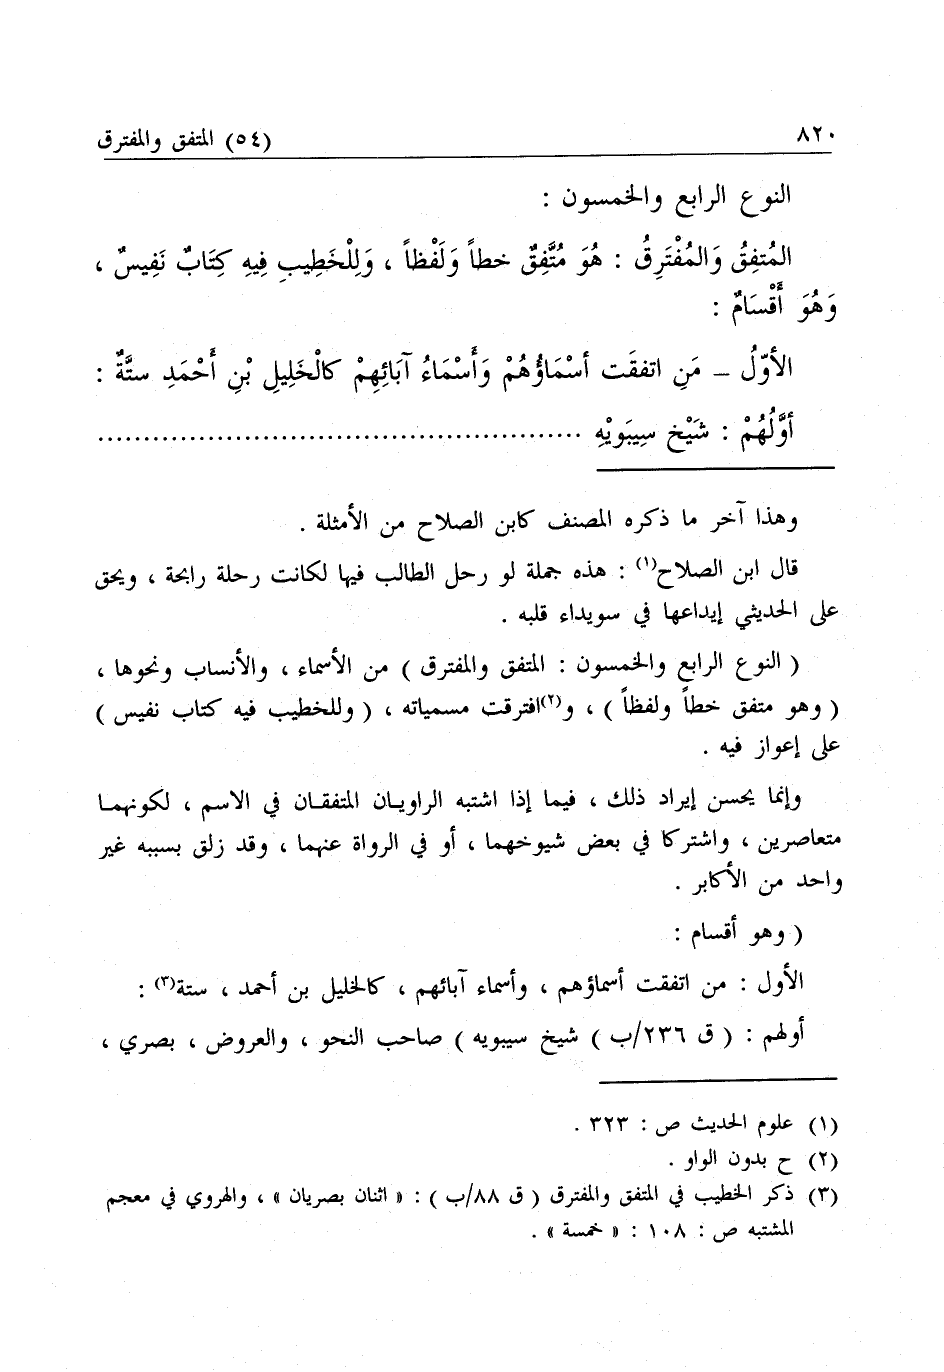 ٨٢٠ (٥٤) المتفق والمفترق
النوع الرابع والخمسون :
المُتفِقُ وَالمُفْتَرِقُ : هُوَ مُتَّفِقٌ خطاً وَلَفْظاً ، وَلِلْخَطِيبِ فِيهِ كِتَابٌ نَفِيسٌ ،
وَهُوَ أَقْسَامٌ :
الأوّلُ ــ مَنِ اتفقَت أسْمَاؤُهُمْ وَأَسْمَاءُ آبَائِهِمْ كالْخَلِيلِ بْنِ أَحْمَدِ ستَّةٌ :
أوَّلُهُمْ : شَيْخ سِيبَوَيْهِ ......................................................
وهذا آخر ما ذكره المصنف كابن الصلاح من الأمثلة .
قال ابن الصلاح(١) : هذه جملة لو رحل الطالب فيها لكانت رحلة رابحة ، ويحق
على الحديثي إيداعها في سويداء قلبه .
( النوع الرابع والخمسون : المتفق والمفترق ) من الأسماء ، والأنساب ونحوها ،
( وهو متفق خطاً ولفظاً ) ، و(٢)افترقت مسمياته ، ( وللخطيب فيه كتاب نفيس )
على إعواز فيه .
وإنما يحسن إيراد ذلك ، فيما إذا اشتبه الراويـان المتفقـان في الاسم ، لكونهمـا
متعاصرين ، واشتركا في بعض شيوخهما ، أو في الرواة عنهما ، وقد زلق بسببه غير
واحد من الأكابر .
( وهو أقسام :
الأول : من اتفقت أسماؤهم ، وأسماء آبائهم ، كالخليل بن أحمد ، ستة(٣) :
أولهم : ( ق ٢٣٦/ب ) شيخ سيبويه ) صاحب النحو ، والعروض ، بصري ،
(١) علوم الحديث ص : ٣٢٣ .
(٢) ح بدون الواو .
(٣) ذكر الخطيب في المتفق والمفترق ( ق ٨٨/ب ) : « اثنان بصريان » ، والهروي في معجم
المشتبه ص : ١٠٨ : « خمسة » .